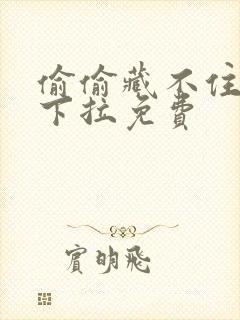 偷偷藏不住
下拉免费
賓明飛